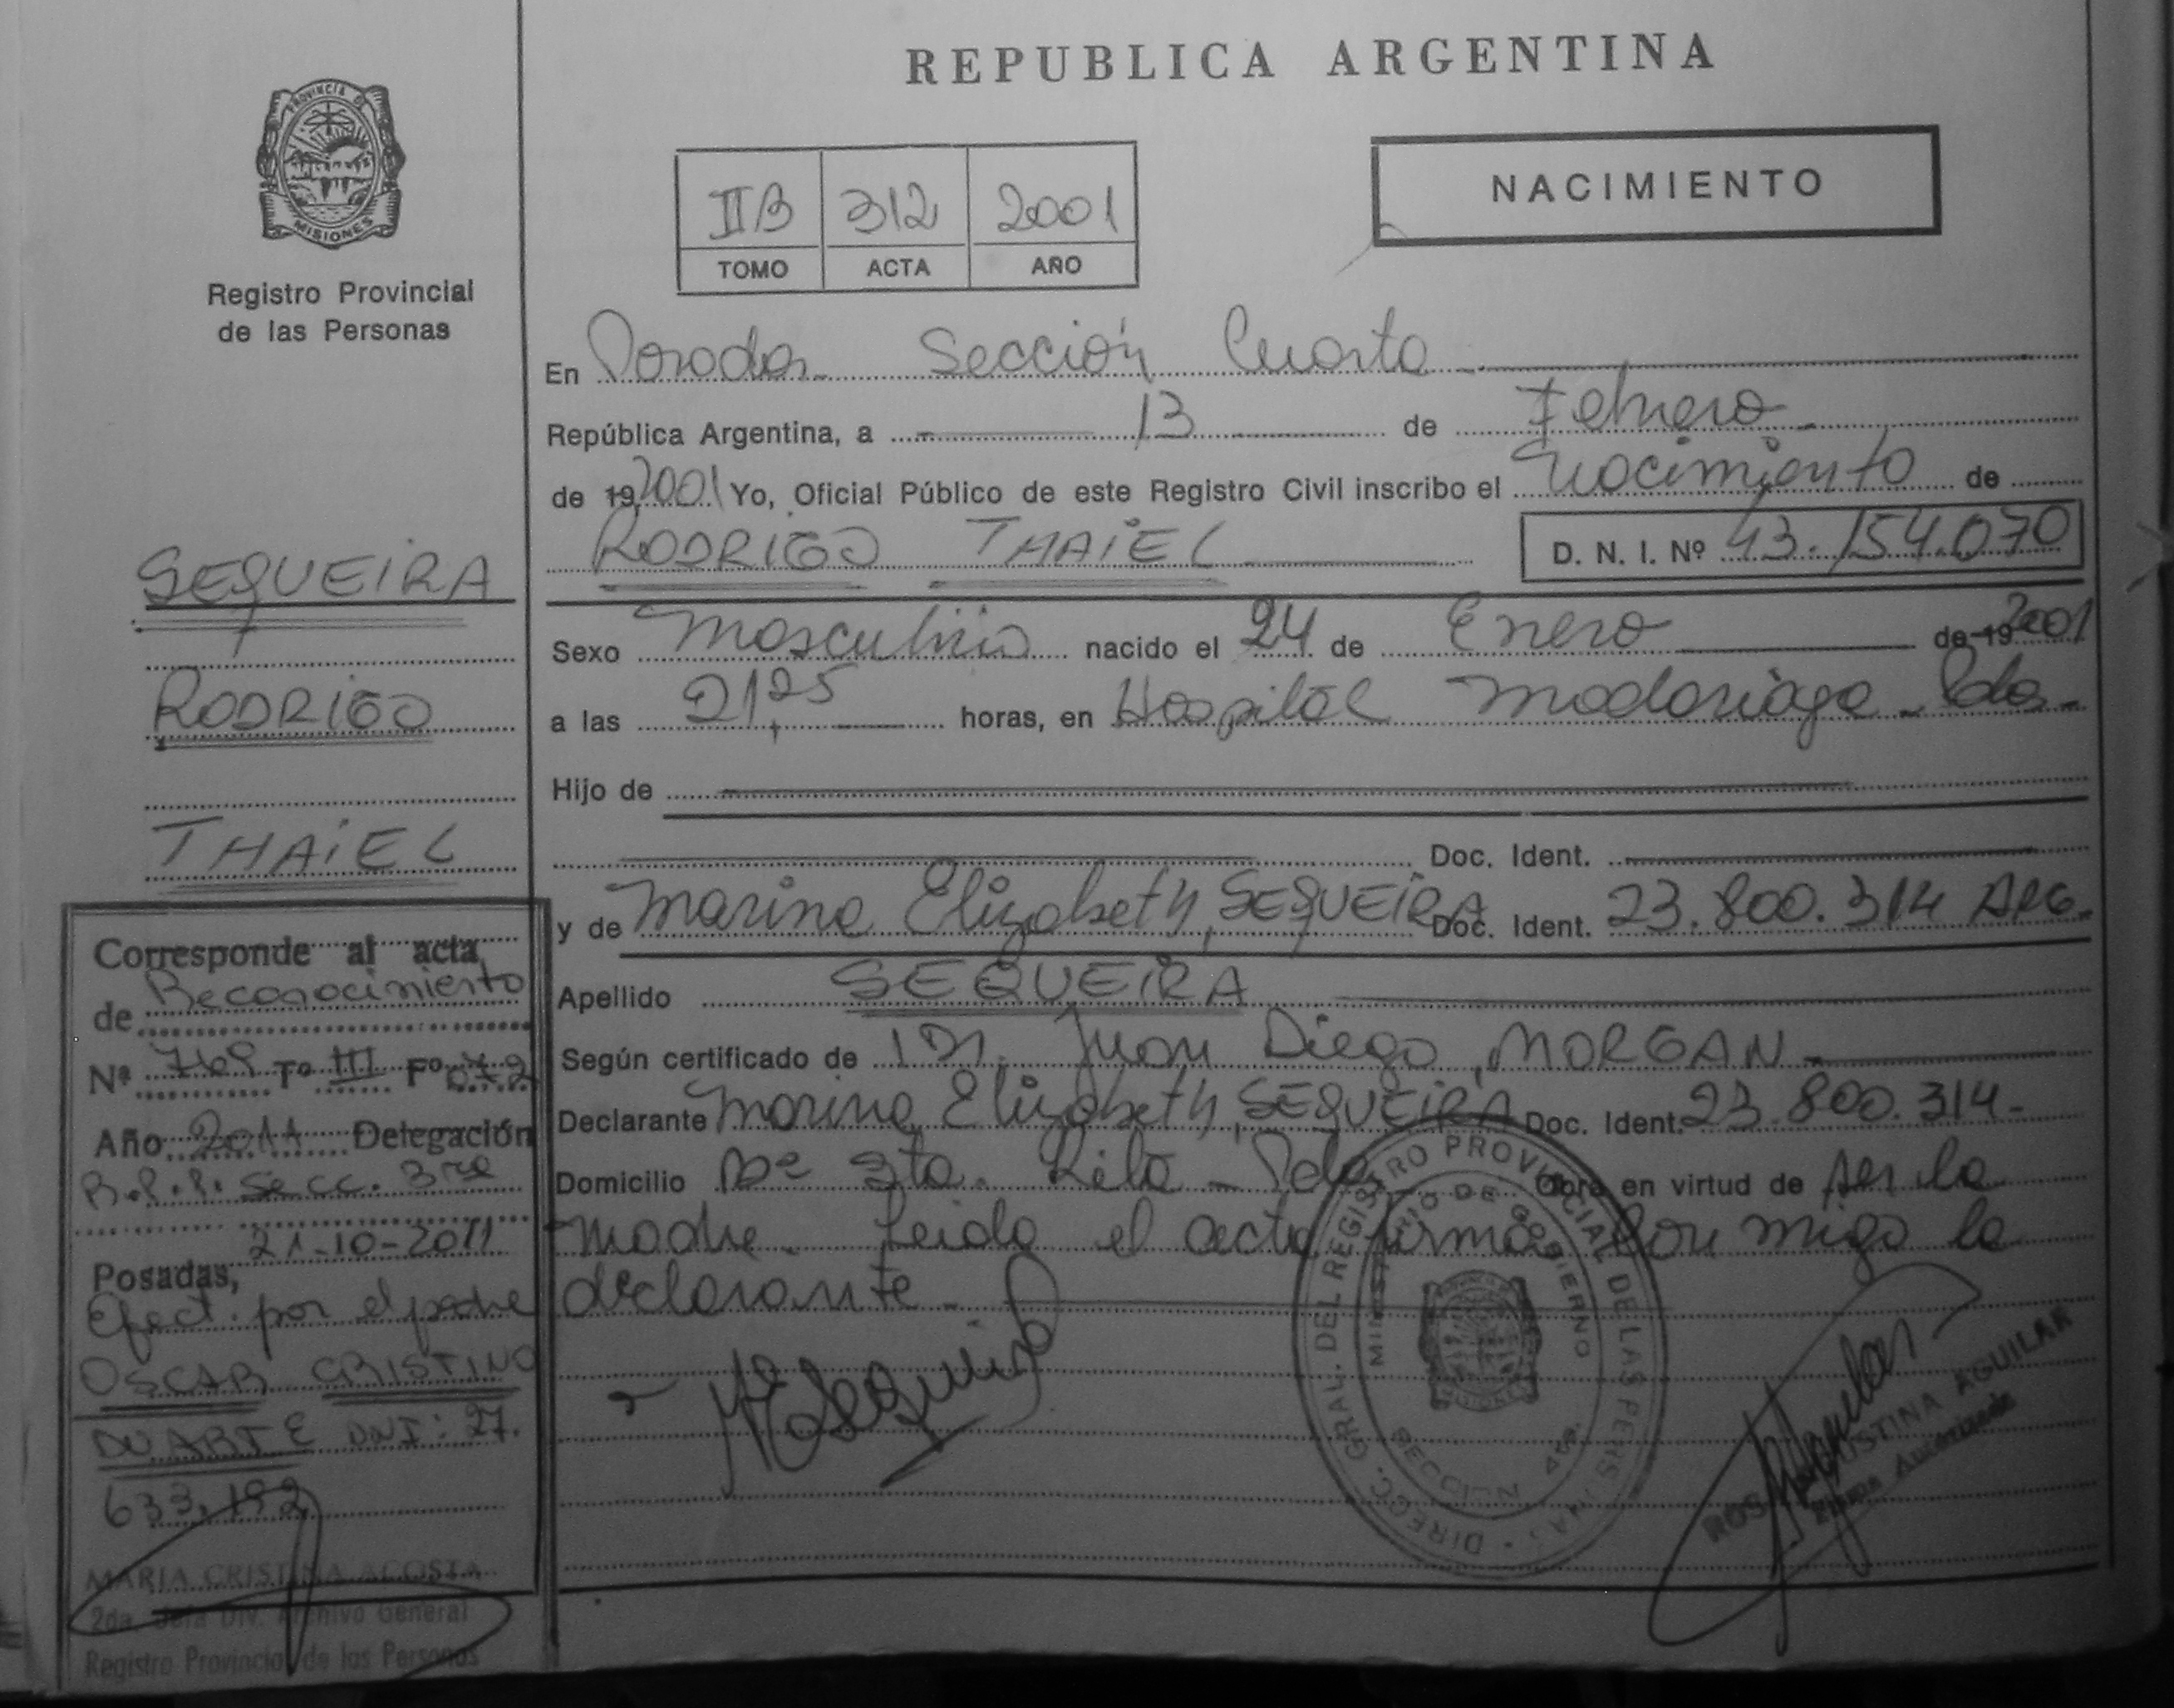 REPUBLICA ARGENTINA
PROVINCIA DE
MISIONES
Registro Provincial
de las Personas
IIB 312 2001
TOMO ACTA AÑO
NACIMIENTO
En Posadas Sección Cuarta
República Argentina, a 13 de Febrero
de 19 2001 Yo, Oficial Público de este Registro Civil inscribo el Nacimiento de
RODRIGO THAIEL D. N. I. Nº 43.154.070
SEQUEIRA
RODRIGO
THAIEL
Sexo Masculino nacido el 24 de Enero de 19 2001
a las 21,25 horas, en Hospital Madariaga - Pdas.
Hijo de
Doc. Ident.
y de Marina Elizabeth, SEQUEIRA Doc. Ident. 23.800.314 ARG.
Apellido SEQUEIRA
Según certificado de Dr. Juan Diego, MORGAN
Declarante Marina Elizabeth, SEQUEIRA Doc. Ident. 23.800.314-
Domicilio Bº Sta. Rita - Pdas. Obra en virtud de ser la
madre. Leida el acta firma con migo la
declarante.
Corresponde al acta
de Reconocimiento
Nº 769 Tº III Fº 072
Año 2011 Delegación
R.P.P. Secc. 3ra
21-10-2011
Posadas,
Efect. por el padre
OSCAR CRISTINO
DUARTE DNI: 27.
633.192
MARIA CRISTINA ACOSTA
2da. Jefa Div. Archivo General
Registro Provincial de las Personas
DIRECC. GRAL. DEL REGISTRO PROVINCIAL DE LAS PERSONAS
MINISTERIO DE GOBIERNO
SECCION 4a.
CRISTINA AGUILAR
Firma Autorizada